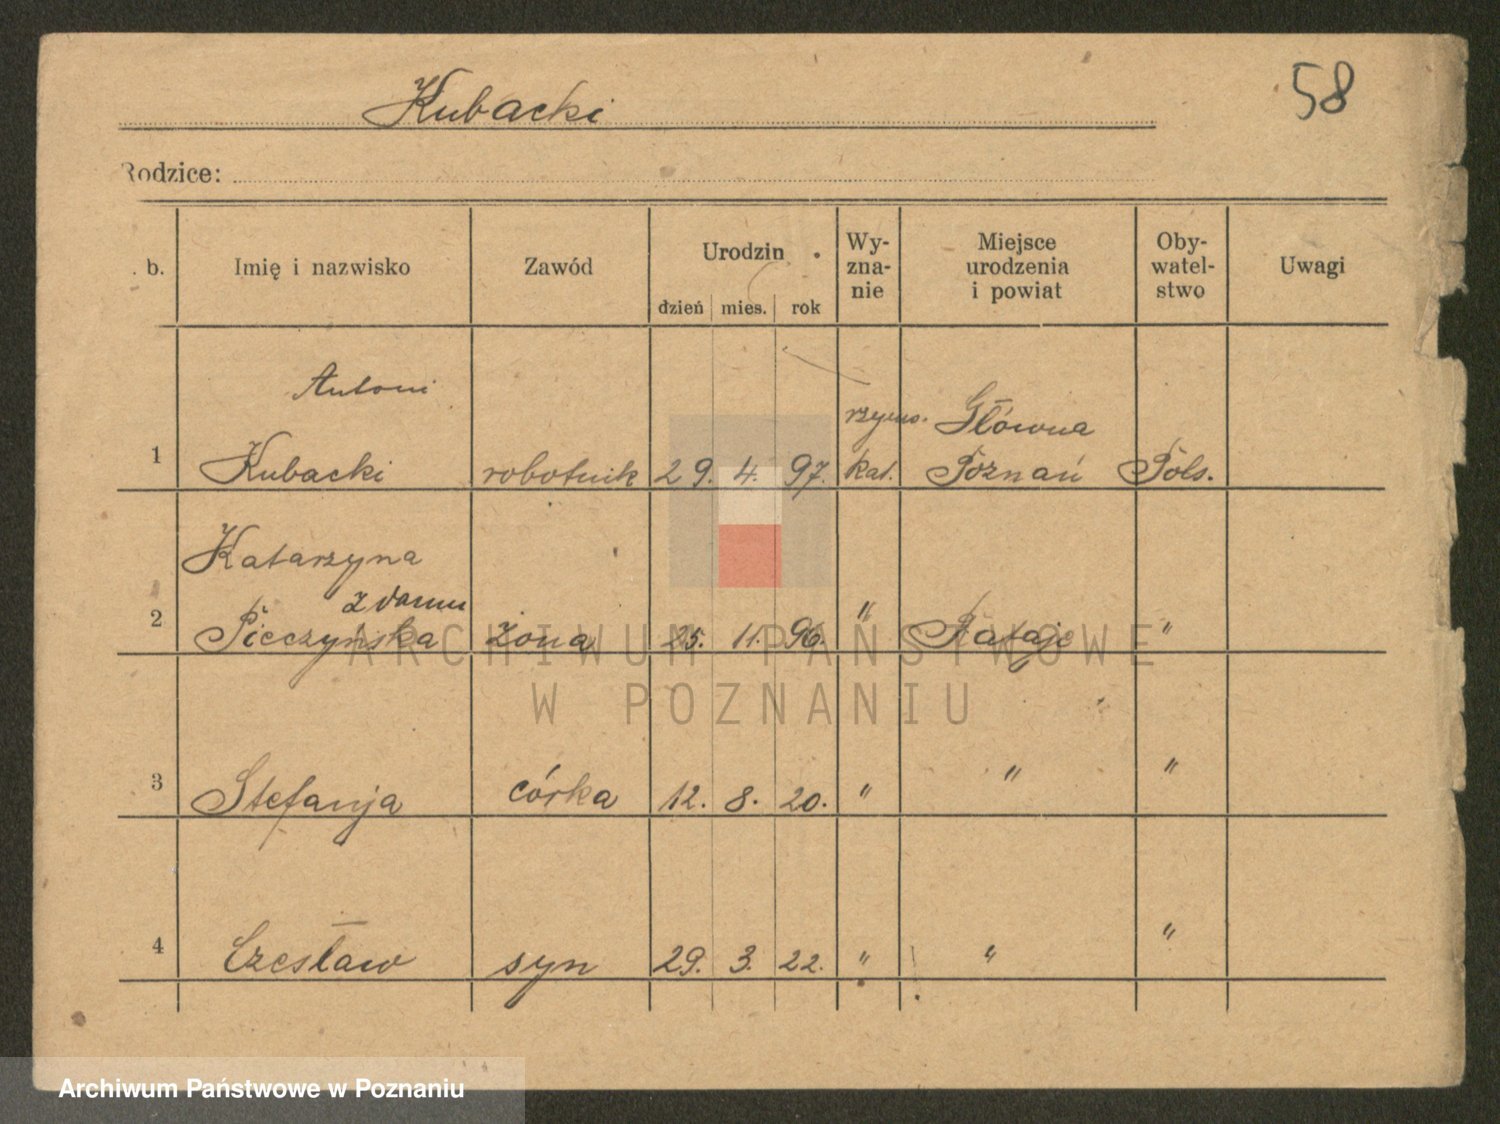 Kubacki
58
Rodzice:
. b.
Imię i nazwisko
Zawód
Urodzin
dzień
mies.
rok
Wy-
zna-
nie
Miejsce
urodzenia
i powiat
Oby-
watel-
stwo
Uwagi
Antoni
1 Kubacki robotnik 29. 4. 97. rzyms. kat. Główna
Poznań Pols.
Katarzyna
z domu
2 Pieczyńska żona 25. 11. 96. " Rataje "
3 Stefanja córka 12. 8. 20. " " "
4 Czesław syn 29. 3. 22. " " "
ARCHIWUM PAŃSTWOWE
W POZNANIU
Archiwum Państwowe w Poznaniu